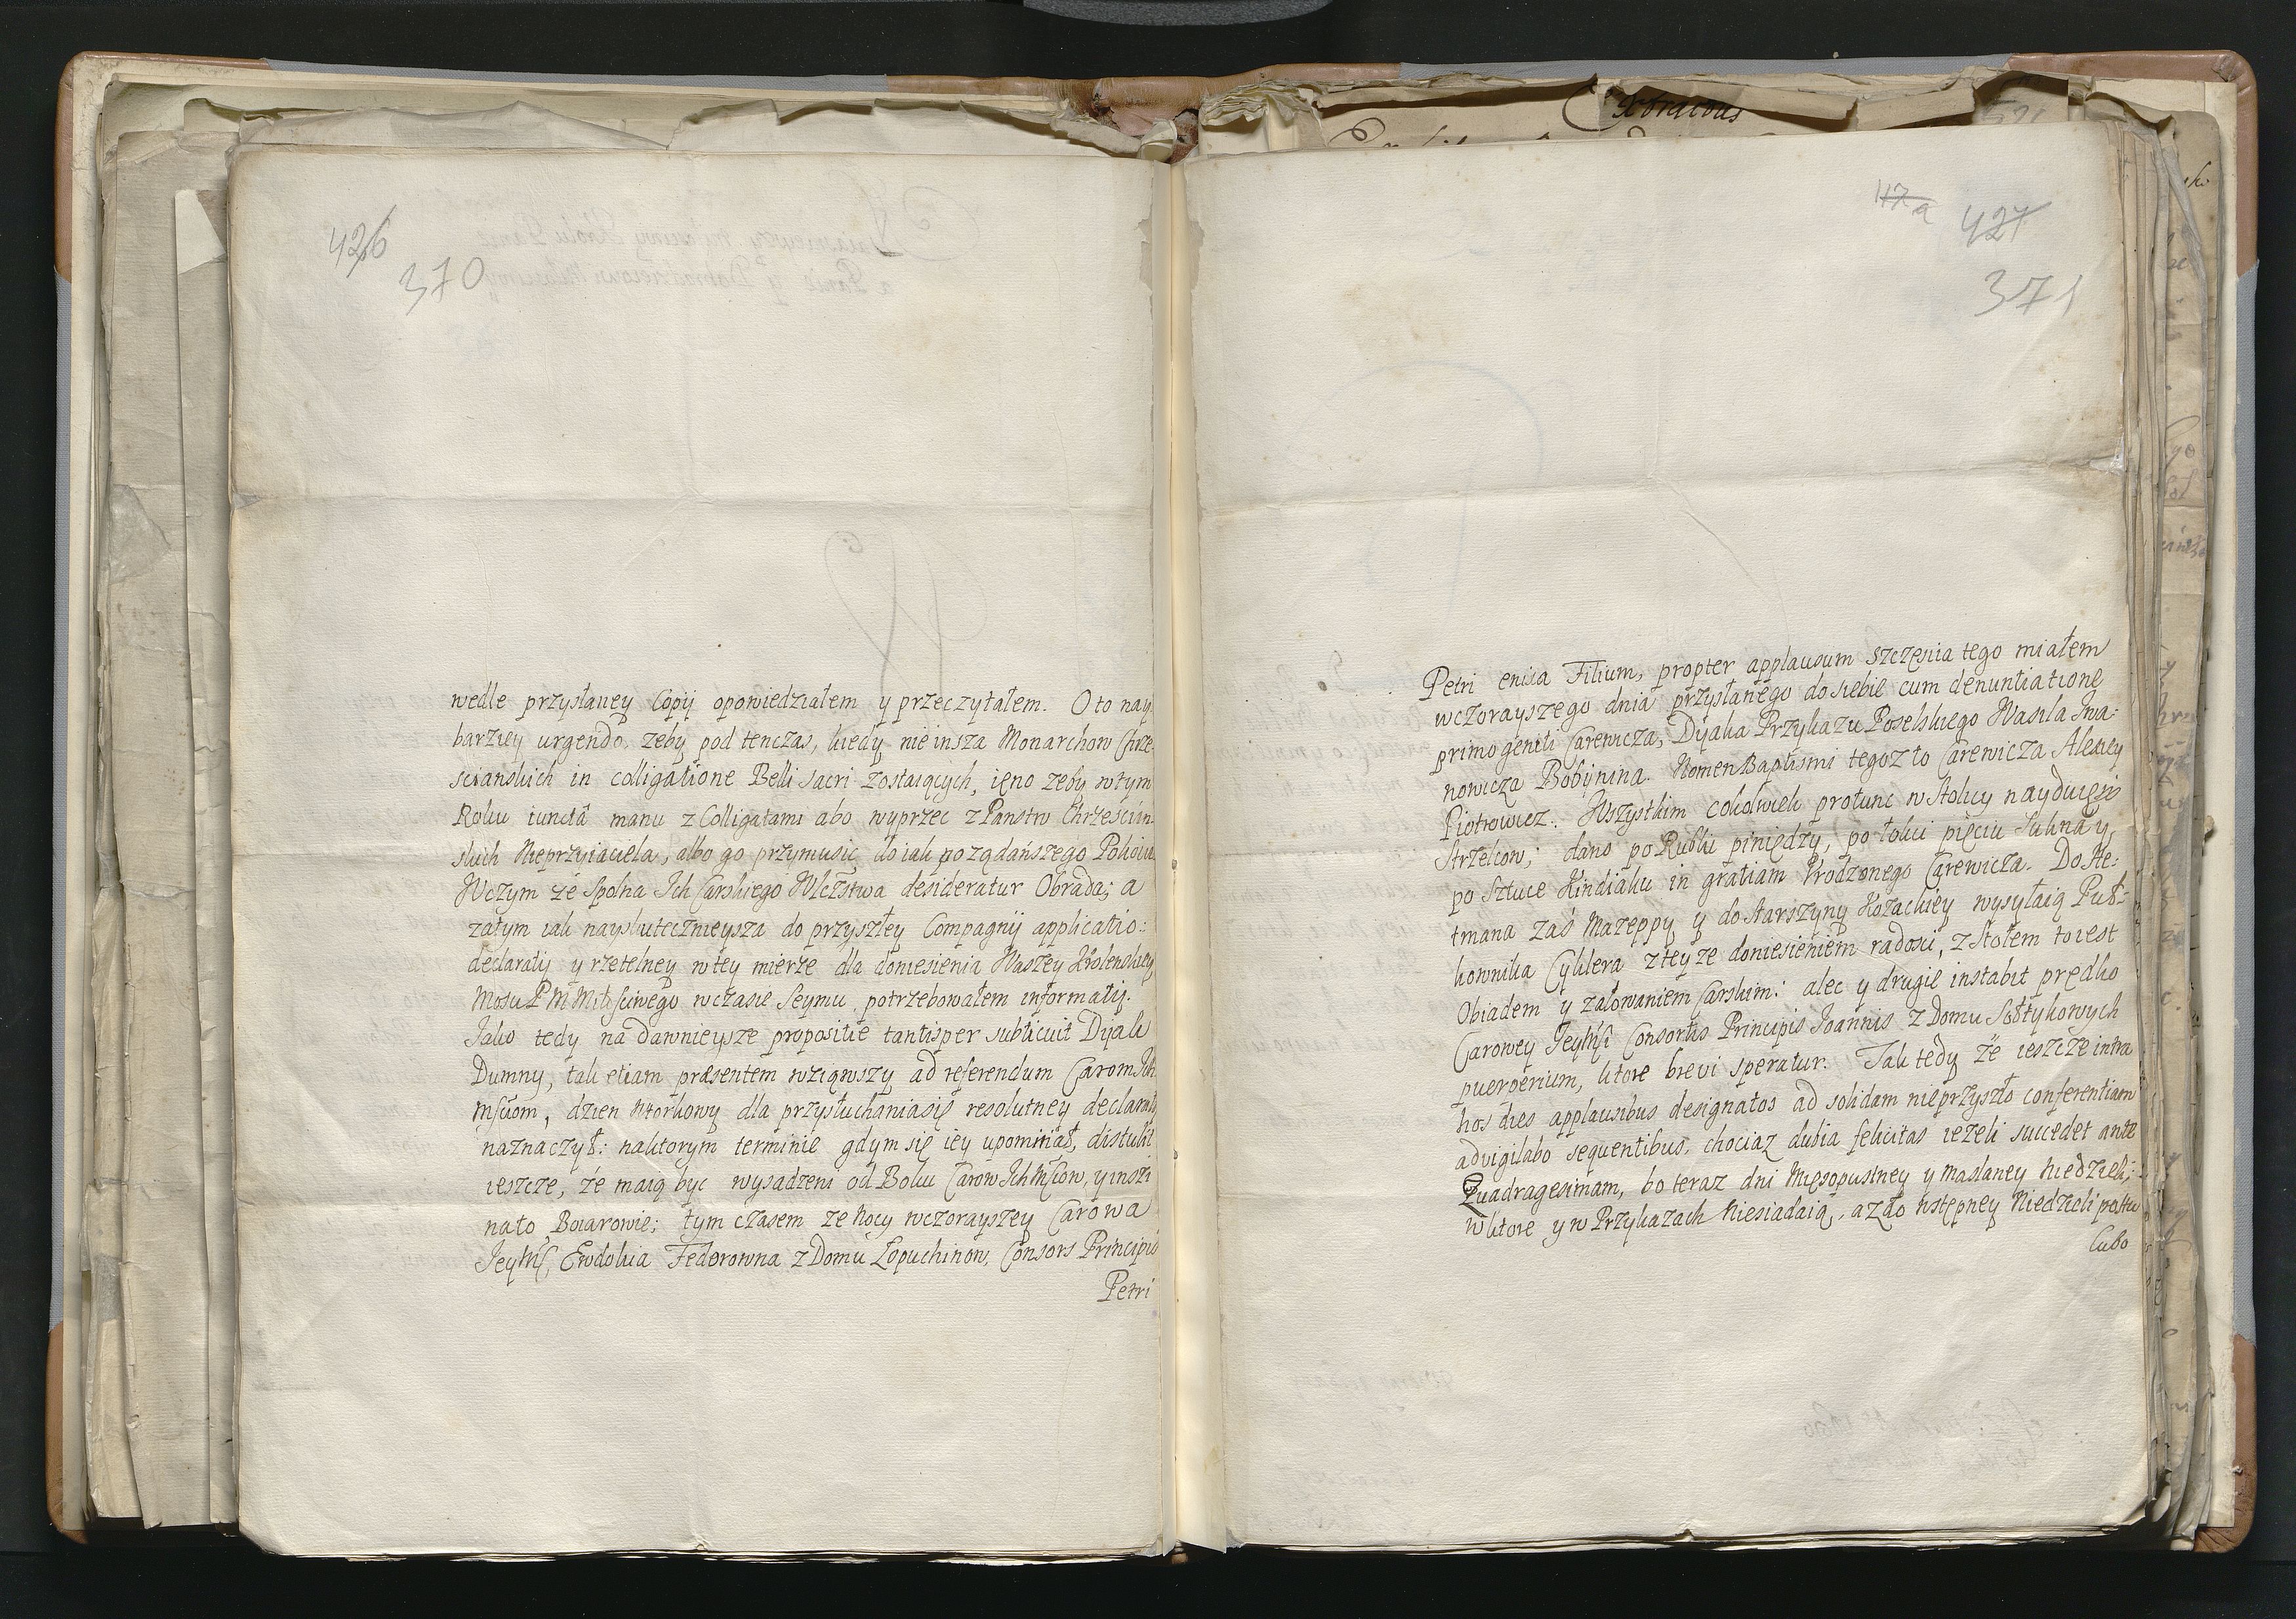 426
370
wedle przysłaney Copij opowiedziałem y przeczytałem. O to nay
barziey urgendo, zeby pod tenczas, kiedy nie insza Monarchow Chrze
scianskich in colligatione Belli sacri zostaiących, ięno zeby w tym
Roku iunctâ manu z Colligatami abo wyprzec z Panstw Chrześciin
skich Nieprzyiaciela, albo go przymusic do iak poządańszego Pokoiu
W czym że Spolna Ich Carskiego Wlczstwa desideratur Obrada; a
zatym iak nayskutecznieysza do przyszłey Compagnij applicatio:
declaratij y rzetelney w tey mierze dla doniesienia Waszey Krolewskiey
Mosci P M Miłosciwego w czasie Seymu potrzebowałem informatij.
Jako tedy na dawnieysze propositie tantisper subticuit Dijak
Dumny, tak etiam præsentem wziąwszy ad referendum Carom Ich
Mściom, dzien Wtorkowy dla przysłuchania się resolutney declaratij
naznaczył: na ktorym terminie gdym się iey upominał, distulit
ieszcze, że maią byc wysadzeni od Boku Carow Ich Mściow, y inszi
na to Boiarowie; tym czasem ze Nocy wczorayszey Carowa
JeyMść Ewdokia Federowna z Domu Lopuchinow, Consors Principis
Petri
117 a
427
371
Petri enisa Filium, propter applausum szczęścia tego miałem
wczorayszego dnia przysłanego do siebie cum denuntiatione
primogeniti Carewicza, Dijaka Przykazu Poselskiego Wasila Iwa:
nowicza Bobynina. Nomen Baptismi tegoz to Carewicza Alexiey
Piotrowicz. Wszystkim cokolwiek protunc w Stolicy nayduięsię
Strzelcow, dano po Rublu piniędzy, po łokci pięciu Sukna y
po Sztuce Kindiaku in gratiam Vrodzonego Carewicza. Do He:
tmana zaś Mazeppy y do Starszyny Kozackiey wysyłaią Puł-
kownika Cyklera z teyze doniesieniem radości, z Stołem to iest
Obiadem y załowaniem Carskim: alec y drugie instabit prędko
Carowey JeyMści Consortis Principis Joannis z Domu Sołtykowych
puerperium, ktore brevi speratur. Tak tedy że ieszcze intra
hos dies applausibus designatos ad solidam nie przyszło conferentiam
advigilabo sequentibus, chociaz dubia felicitas iezeli succedet ante
Quadragesimam, bo teraz dni Mięsopustney y maslaney Niedzieli,
w ktore y w Przykazach Niesiadaią, az do wstępney Niedzieli postu
Lubo